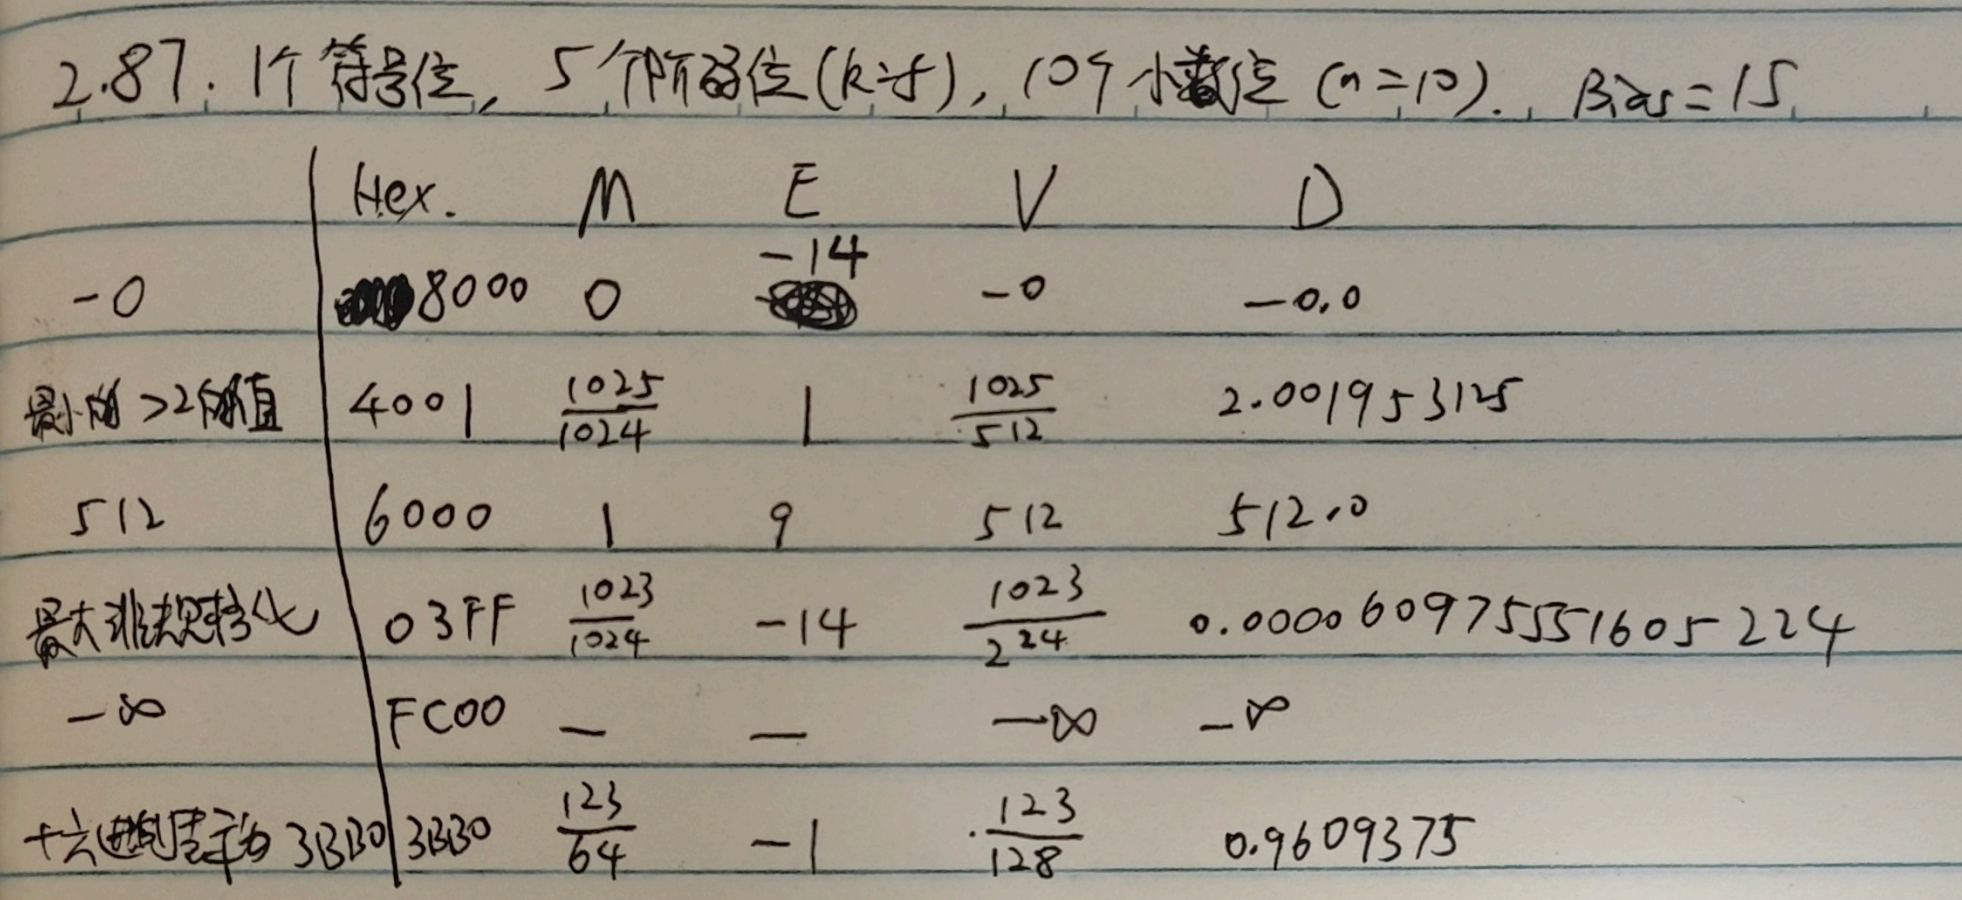 2.87. 1个符号位, 5个阶码位(k=5), 10个小数位 (n=10). Bias=15
Hex. M E V D
-0 8000 0 -14 -0 -0.0
最小的>2的值 4001 1025/1024 1 1025/512 2.001953125
512 6000 1 9 512 512.0
最大非规格化 03FF 1023/1024 -14 1023/2^24 0.000060975551605224
-∞ FC00 — — -∞ -∞
十六进制表示为 3BB0 3BB0 123/64 -1 123/128 0.9609375